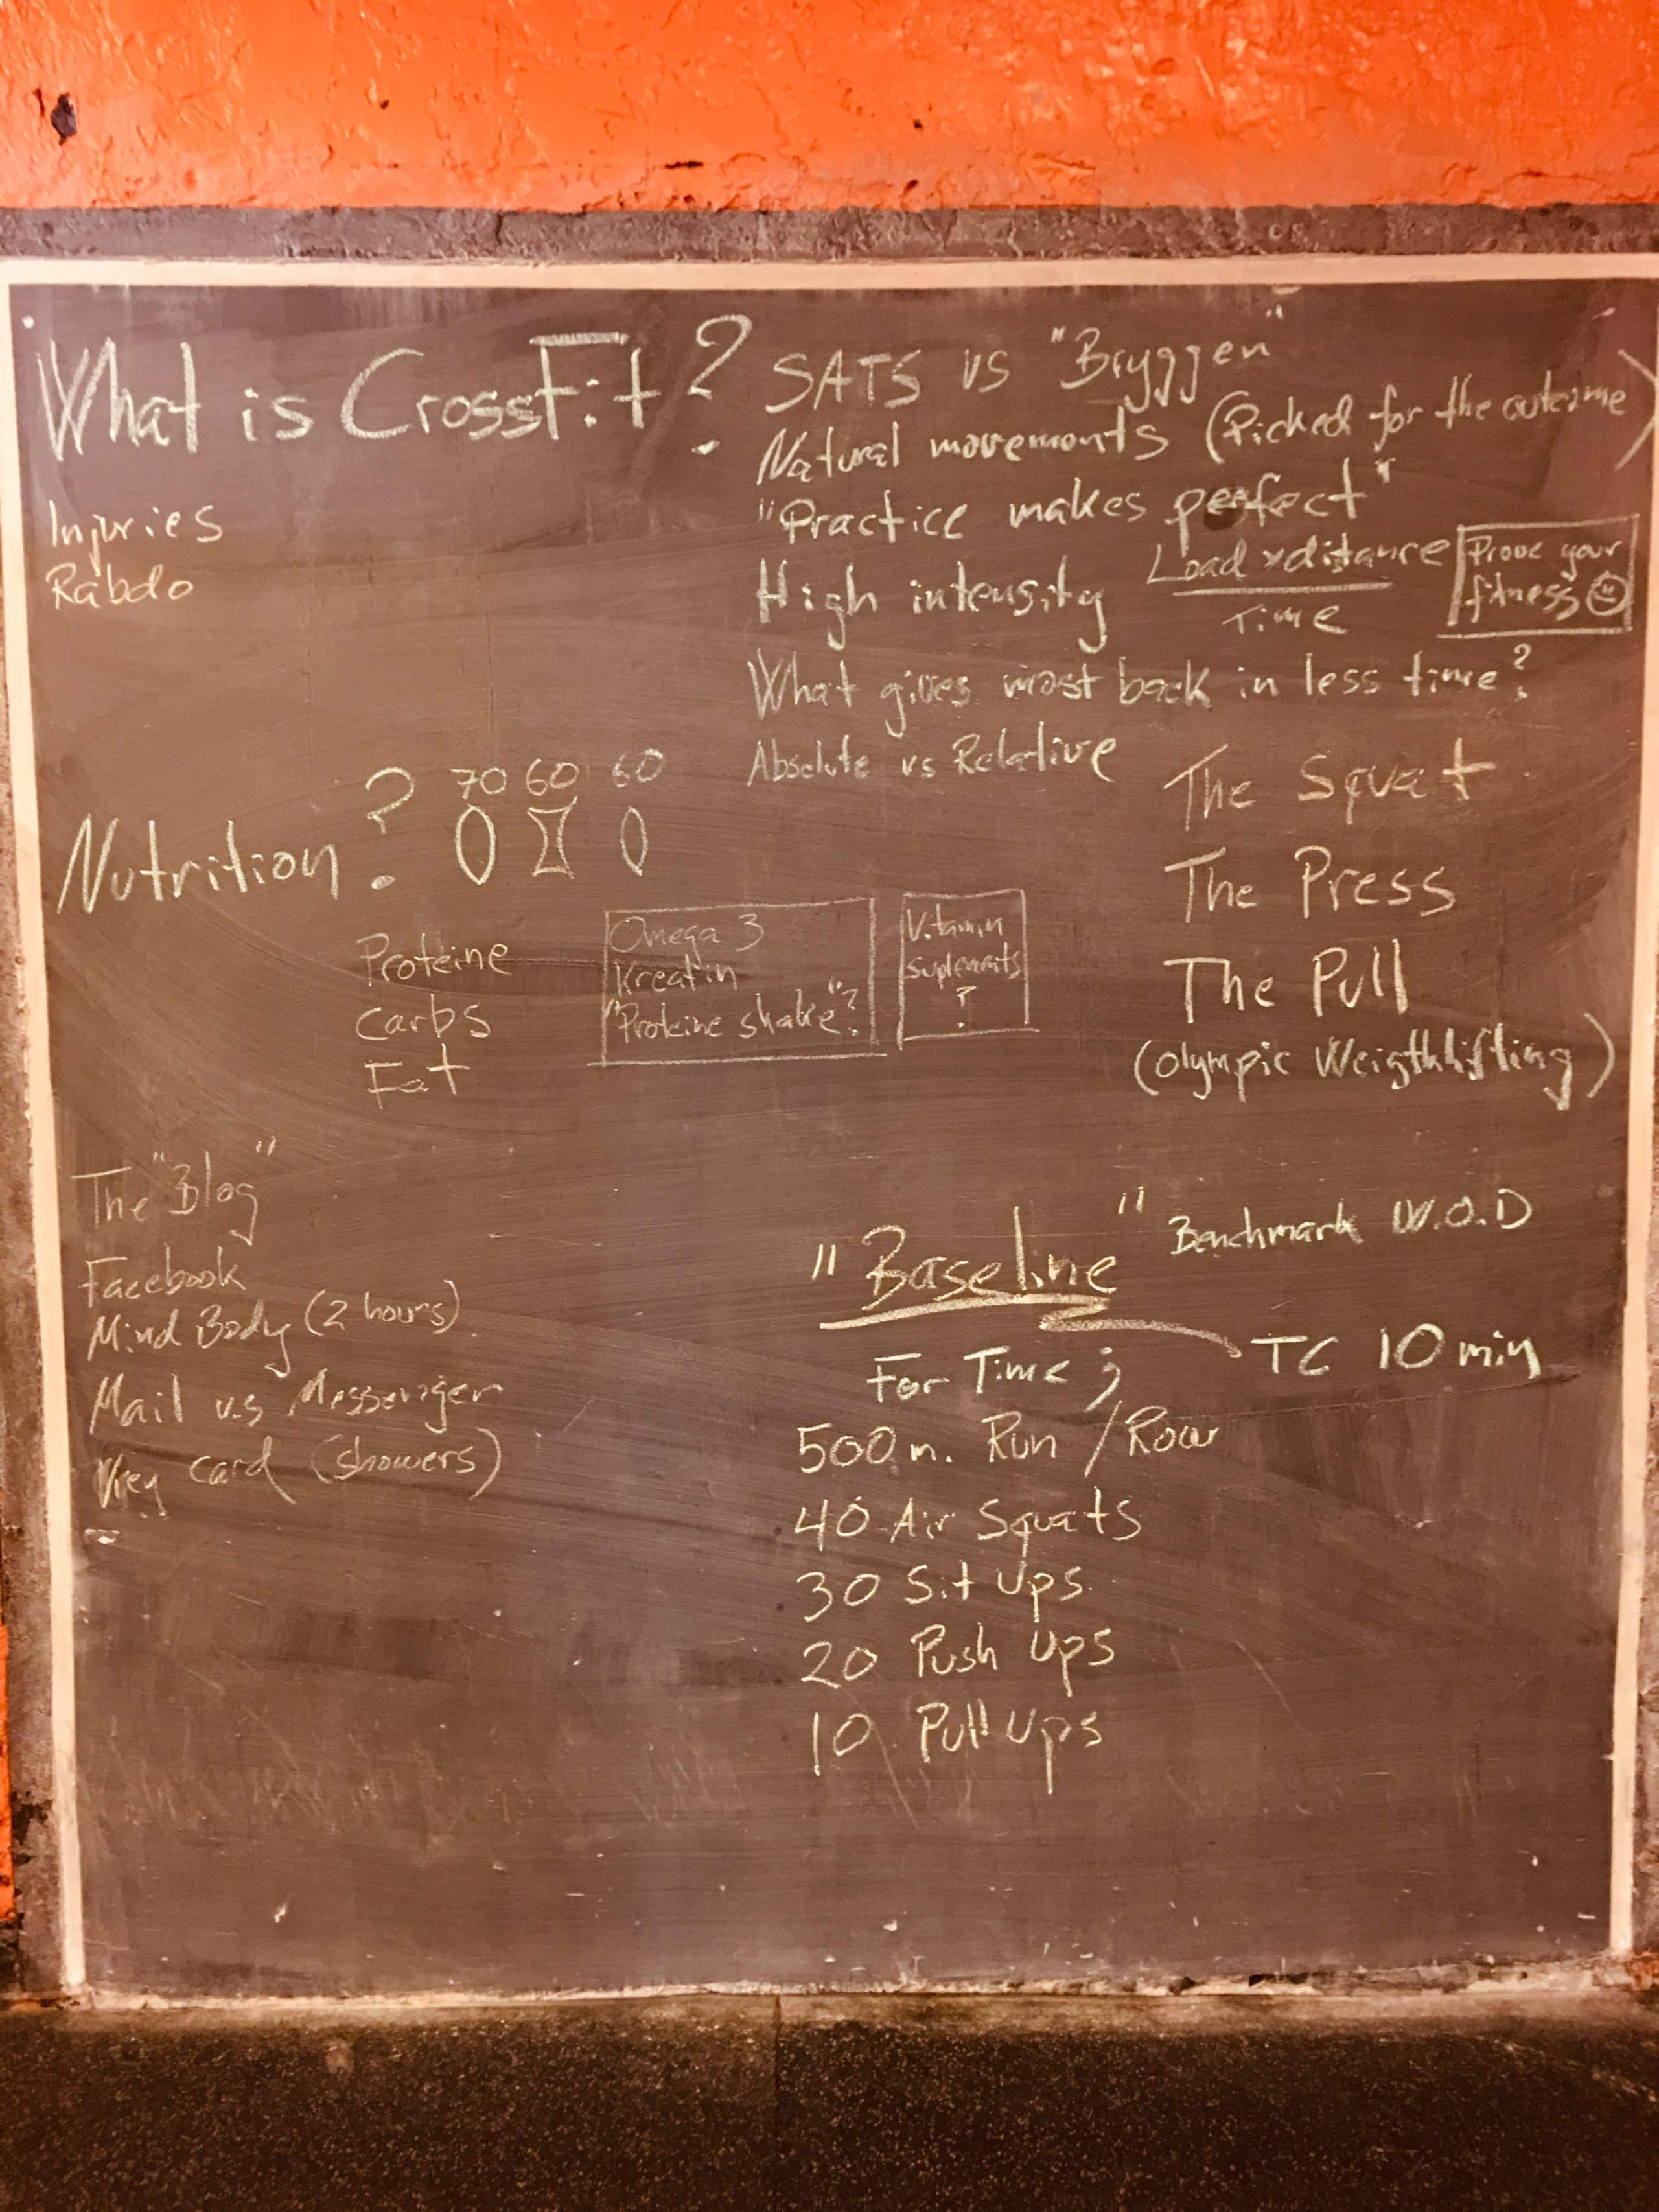 What is CrossFit?
SATS vs "Bryggen"
Natural movements (Picked for the outcome)
"Practice makes perfect"
High intensity
Load x distance
Time
Prove your
fitness
What gives most back in less time?
Absolute vs Relative
Injuries
Rabdo
The Squat
The Press
The Pull
(Olympic Weigthlifting)
Nutrition?
70 60 60
Proteine
Carbs
Fat
Omega 3
Kreatin
"Proteine shake"?
Vitamin
suplements
?
The "Blog"
Facebook
Mind Body (2 hours)
Mail v.s Messenger
Key card (showers)
"Baseline" Benchmark W.O.D
For Time; TC 10 min
500 m. Run / Row
40 Air Squats
30 Sit Ups
20 Push Ups
10 Pull Ups